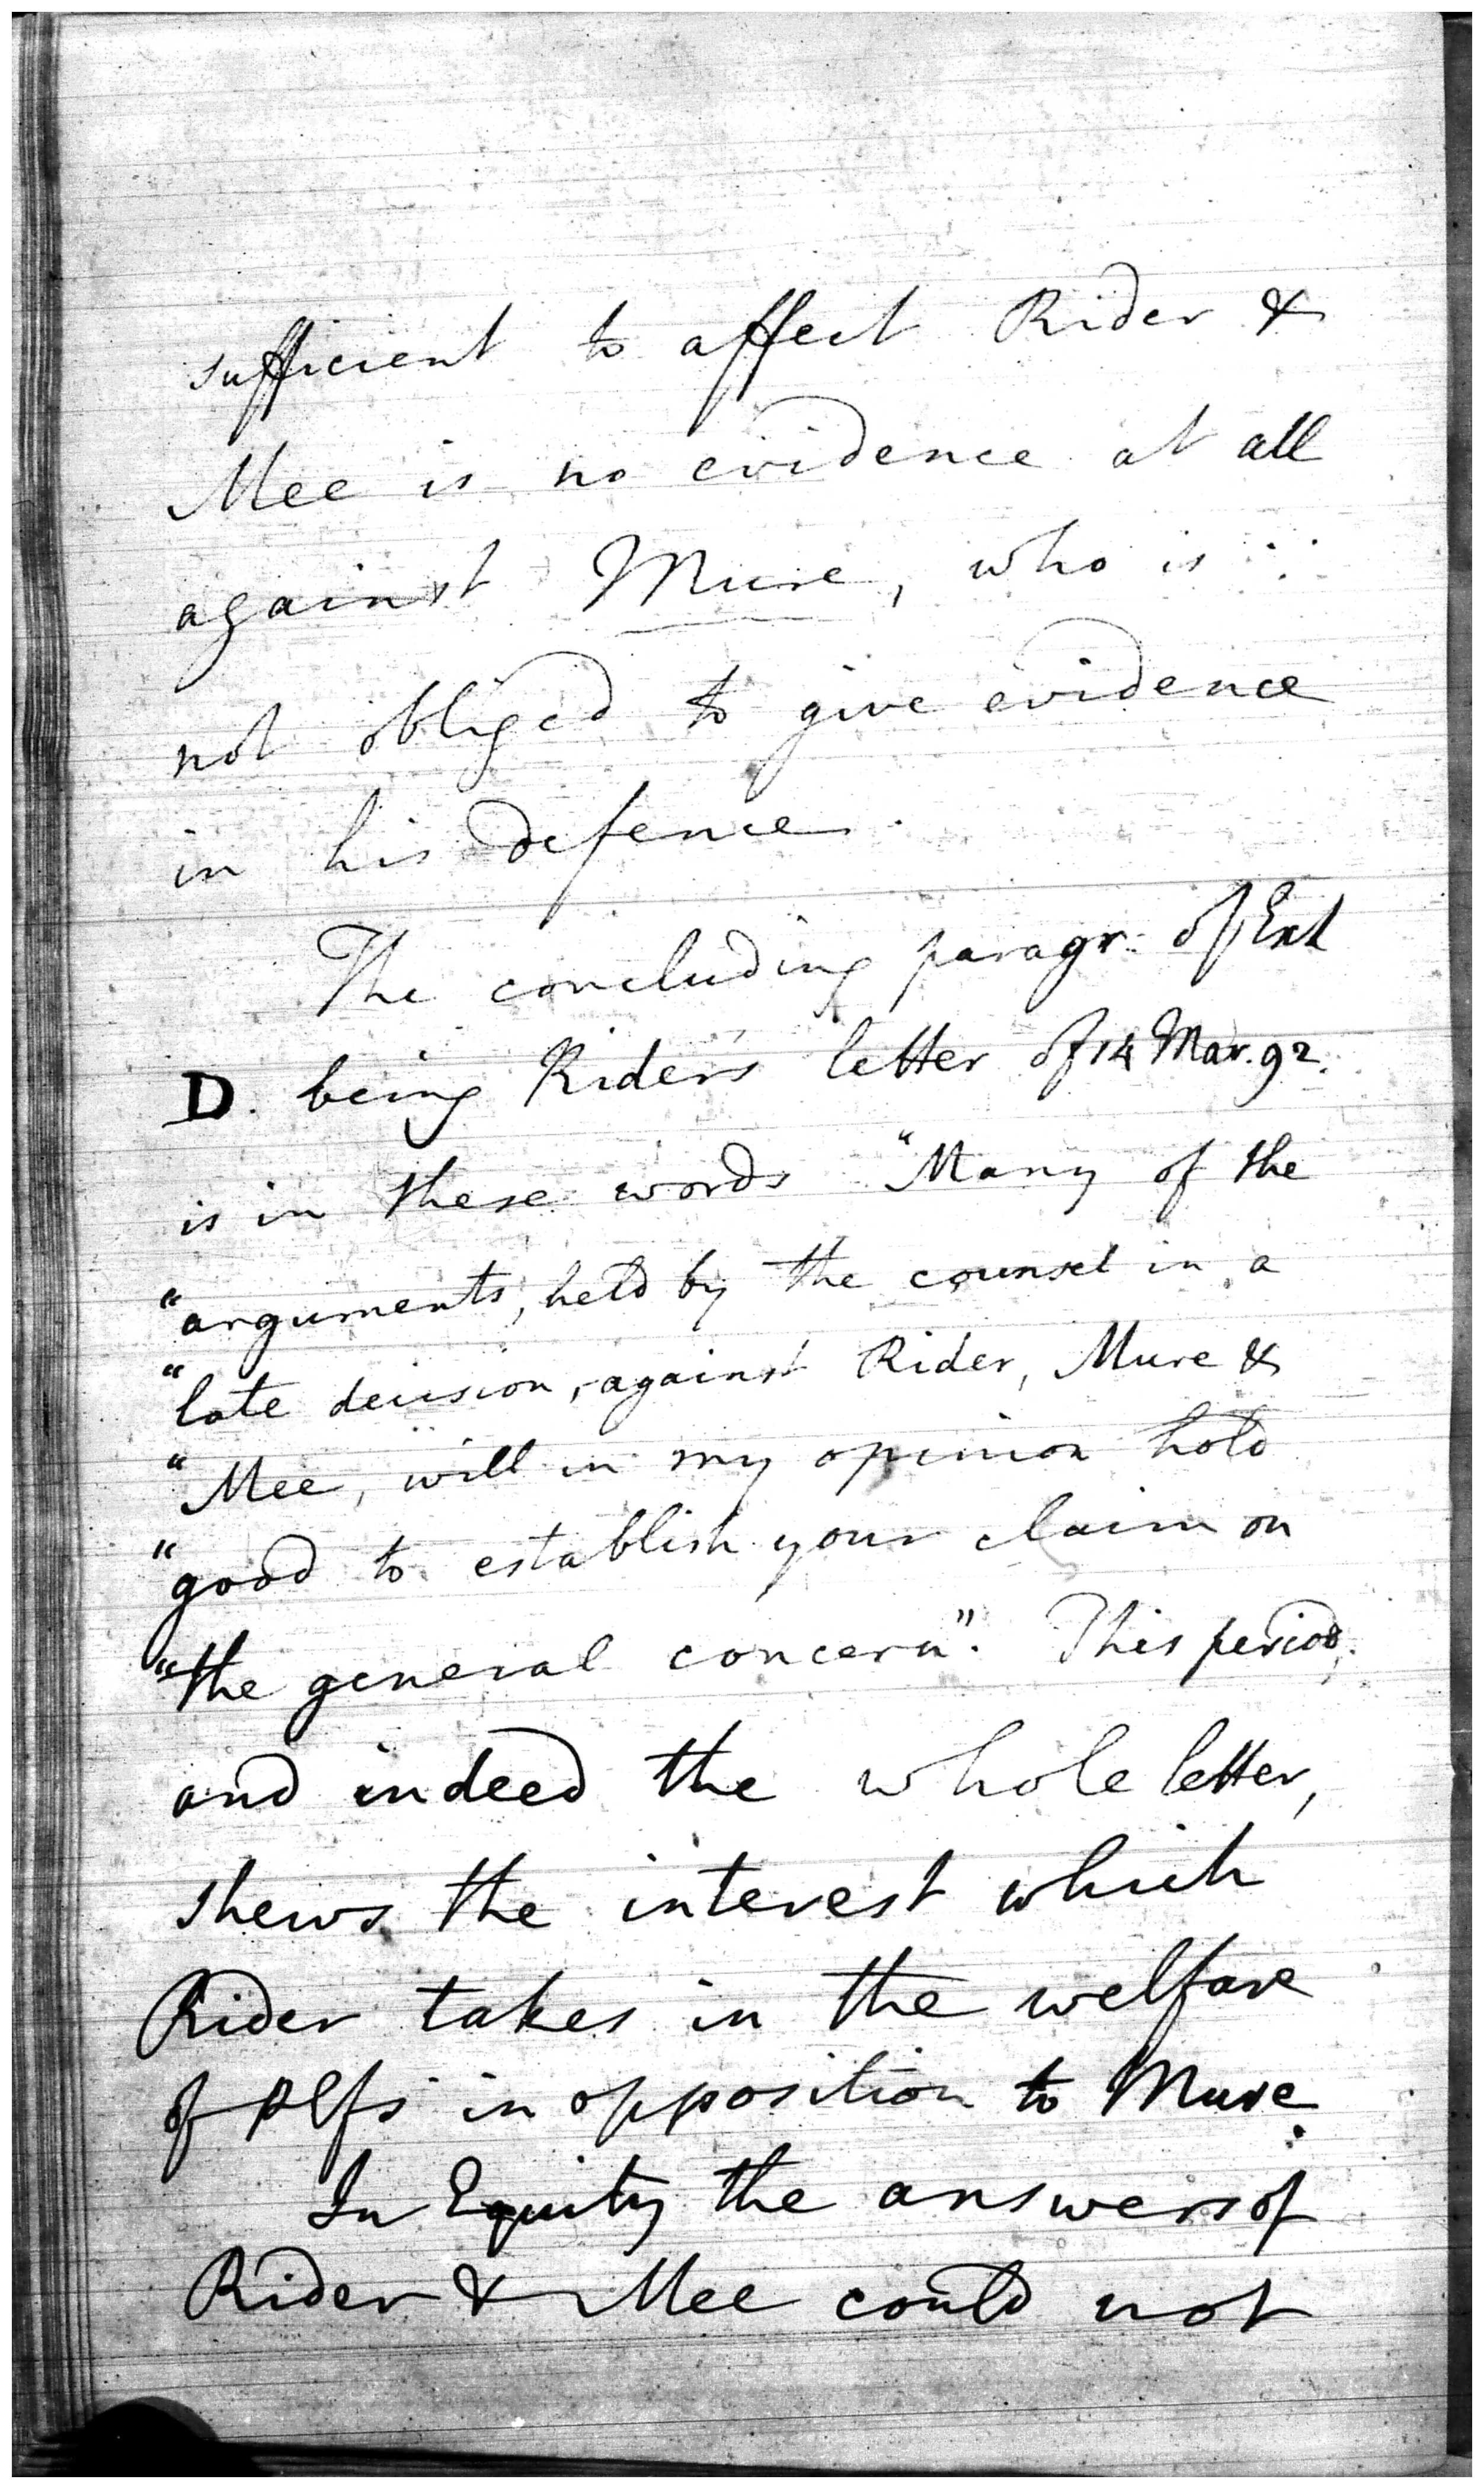 sufficient to affect Rider &
Mee is no evidence at all
against Mure, who is ∴
not obliged to give evidence
in his defence.
The concluding paragr. of Exh
D. being Rider's letter of 14 Mar. 92.
is in these words "Many of the
"arguments, held by the counsel in a
"late decision, against Rider, Mure &
"Mee, will in my opinion hold
"good to establish your claim on
"the general concern". This period,
and indeed the whole letter,
shews the interest which
Rider takes in the welfare
of plfs in opposition to Mure.
In Equity the answers of
Rider & Mee could not